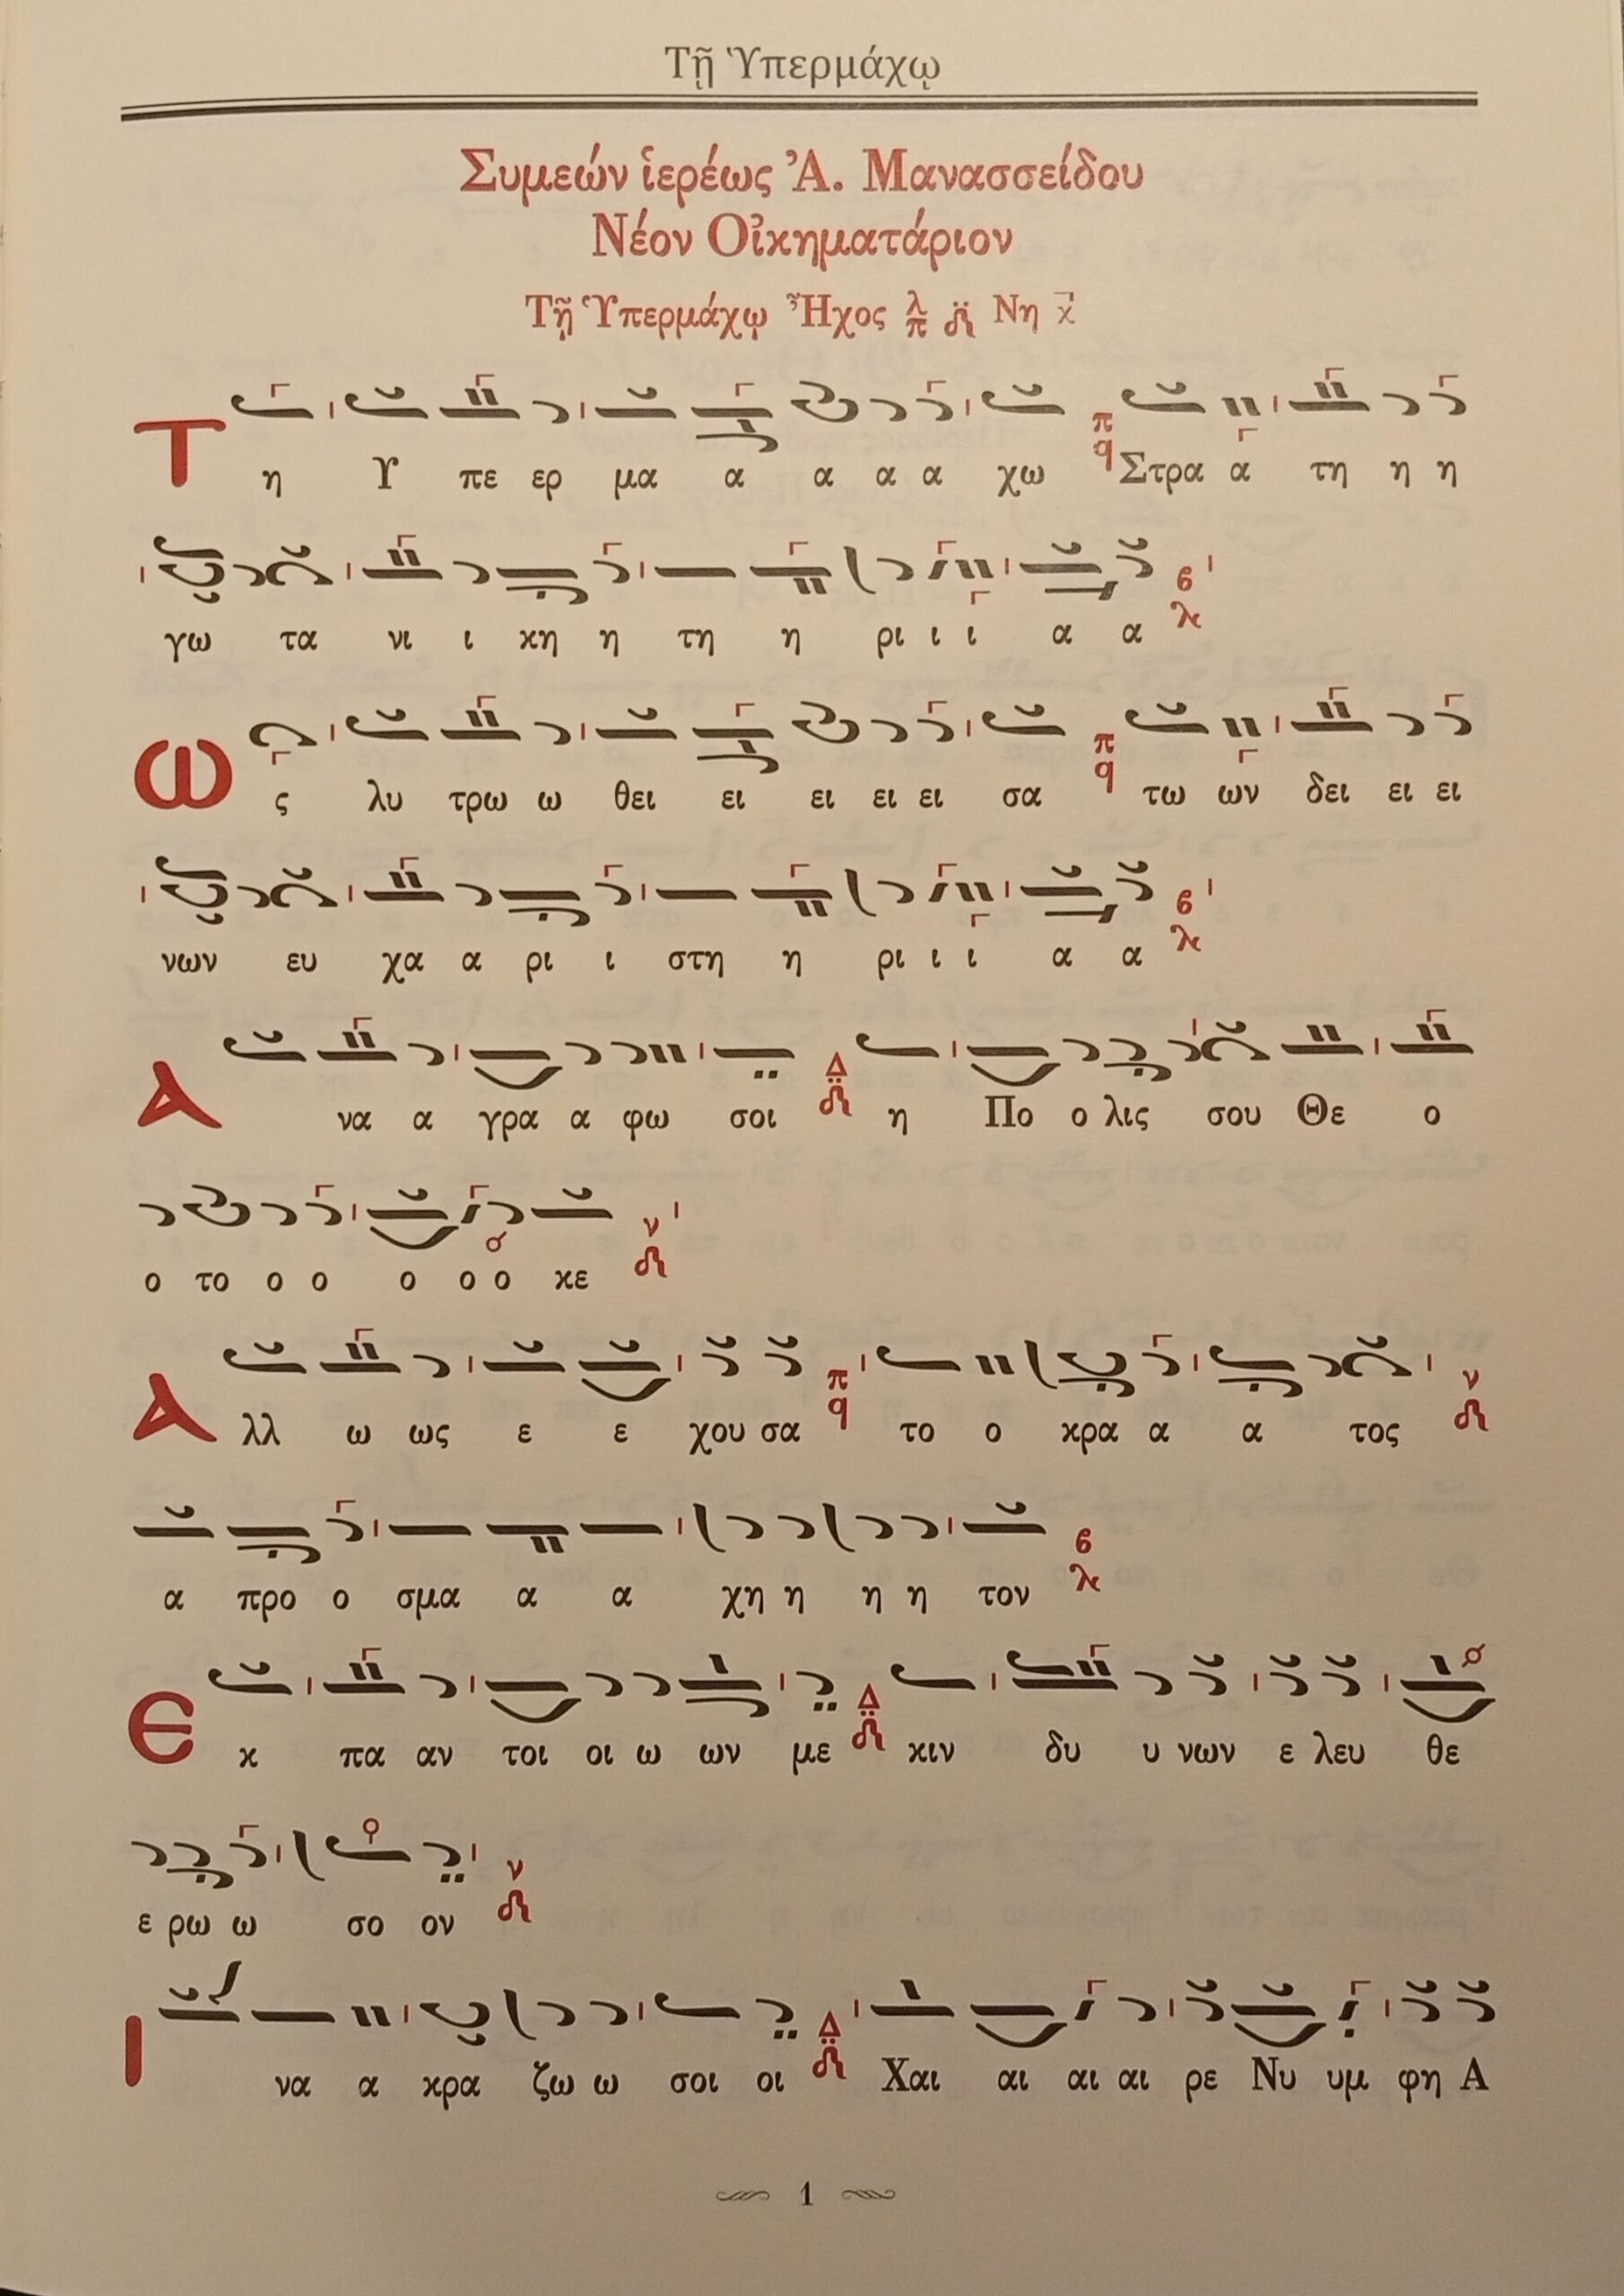 Τῇ Ὑπερμάχῳ
Συμεών ἱερέως Ἀ. Μανασσείδου
Νέον Οἰκηματάριον
Τῇ Ὑπερμάχῳ Ἦχος λ π Νη χ
Τη Υ πε ερ μα α α α α χω π q Στρα α τη η η
γω τα νι ι κη η τη η ρι ι ι α α
ως λυ τρω ω θει ει ει ει ει σα π q τω ων δει ει ει
νων ευ χα α ρι ι στη η ρι ι ι α α
Α να α γρα α φω σοι Δ η Πο ο λις σου Θε ο
ο το ο ο ο ο ο κε ν
Α λλ ω ως ε ε χου σα π q το ο κρα α α τος ν
α προ ο σμα α α χη η η η τον
Ε κ πα αν τοι οι ω ων με Δ κιν δυ υ νων ε λευ θε
ε ρω ω σο ον ν
Ι να α κρα ζω ω σοι οι Δ Χαι αι αι αι ρε Νυ υμ φη Α
1